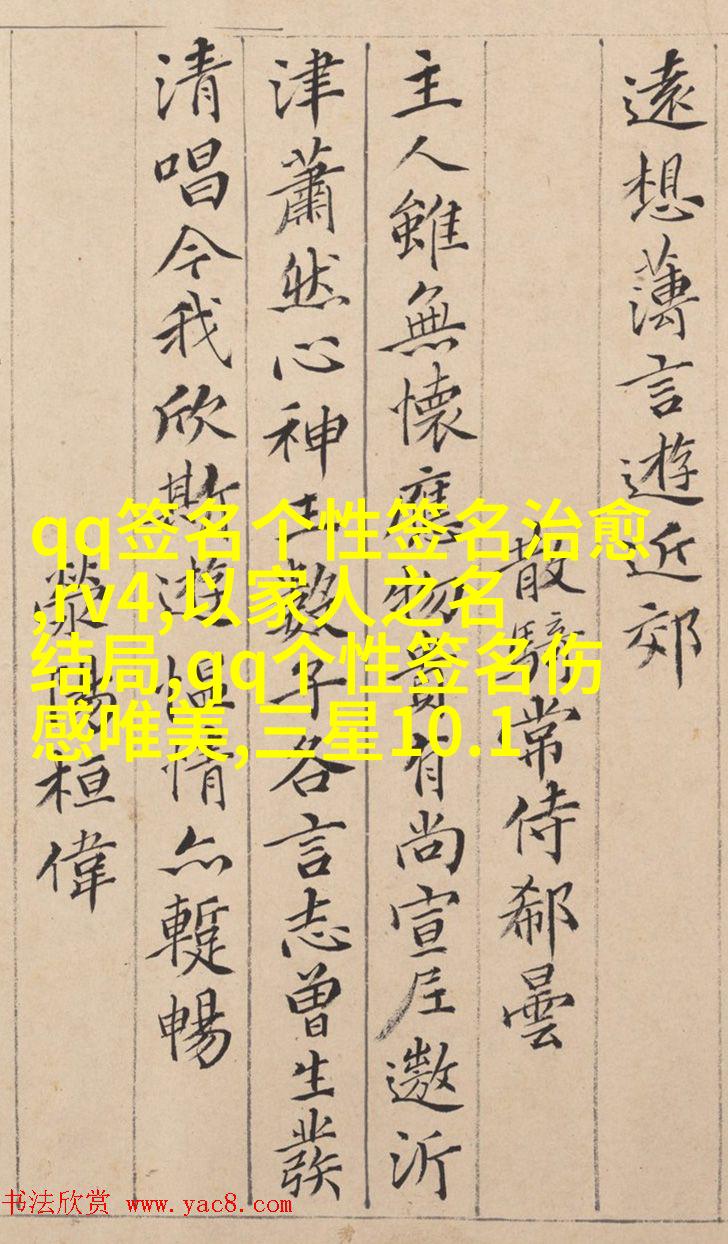 遠想薄言遊近郊
散騎常侍郗曇
主人雖無懷應物貴有尚宣尼遨沂
津蕭然心神王數子各言志曾生發
清唱今我欣斯遊慍情亦蹔暢
滎陽桓偉
qq签名个性签名治愈
,rv4,以家人之名
结局,qq个性签名伤
感唯美,三星10.1
书法欣赏 www.yac8.com